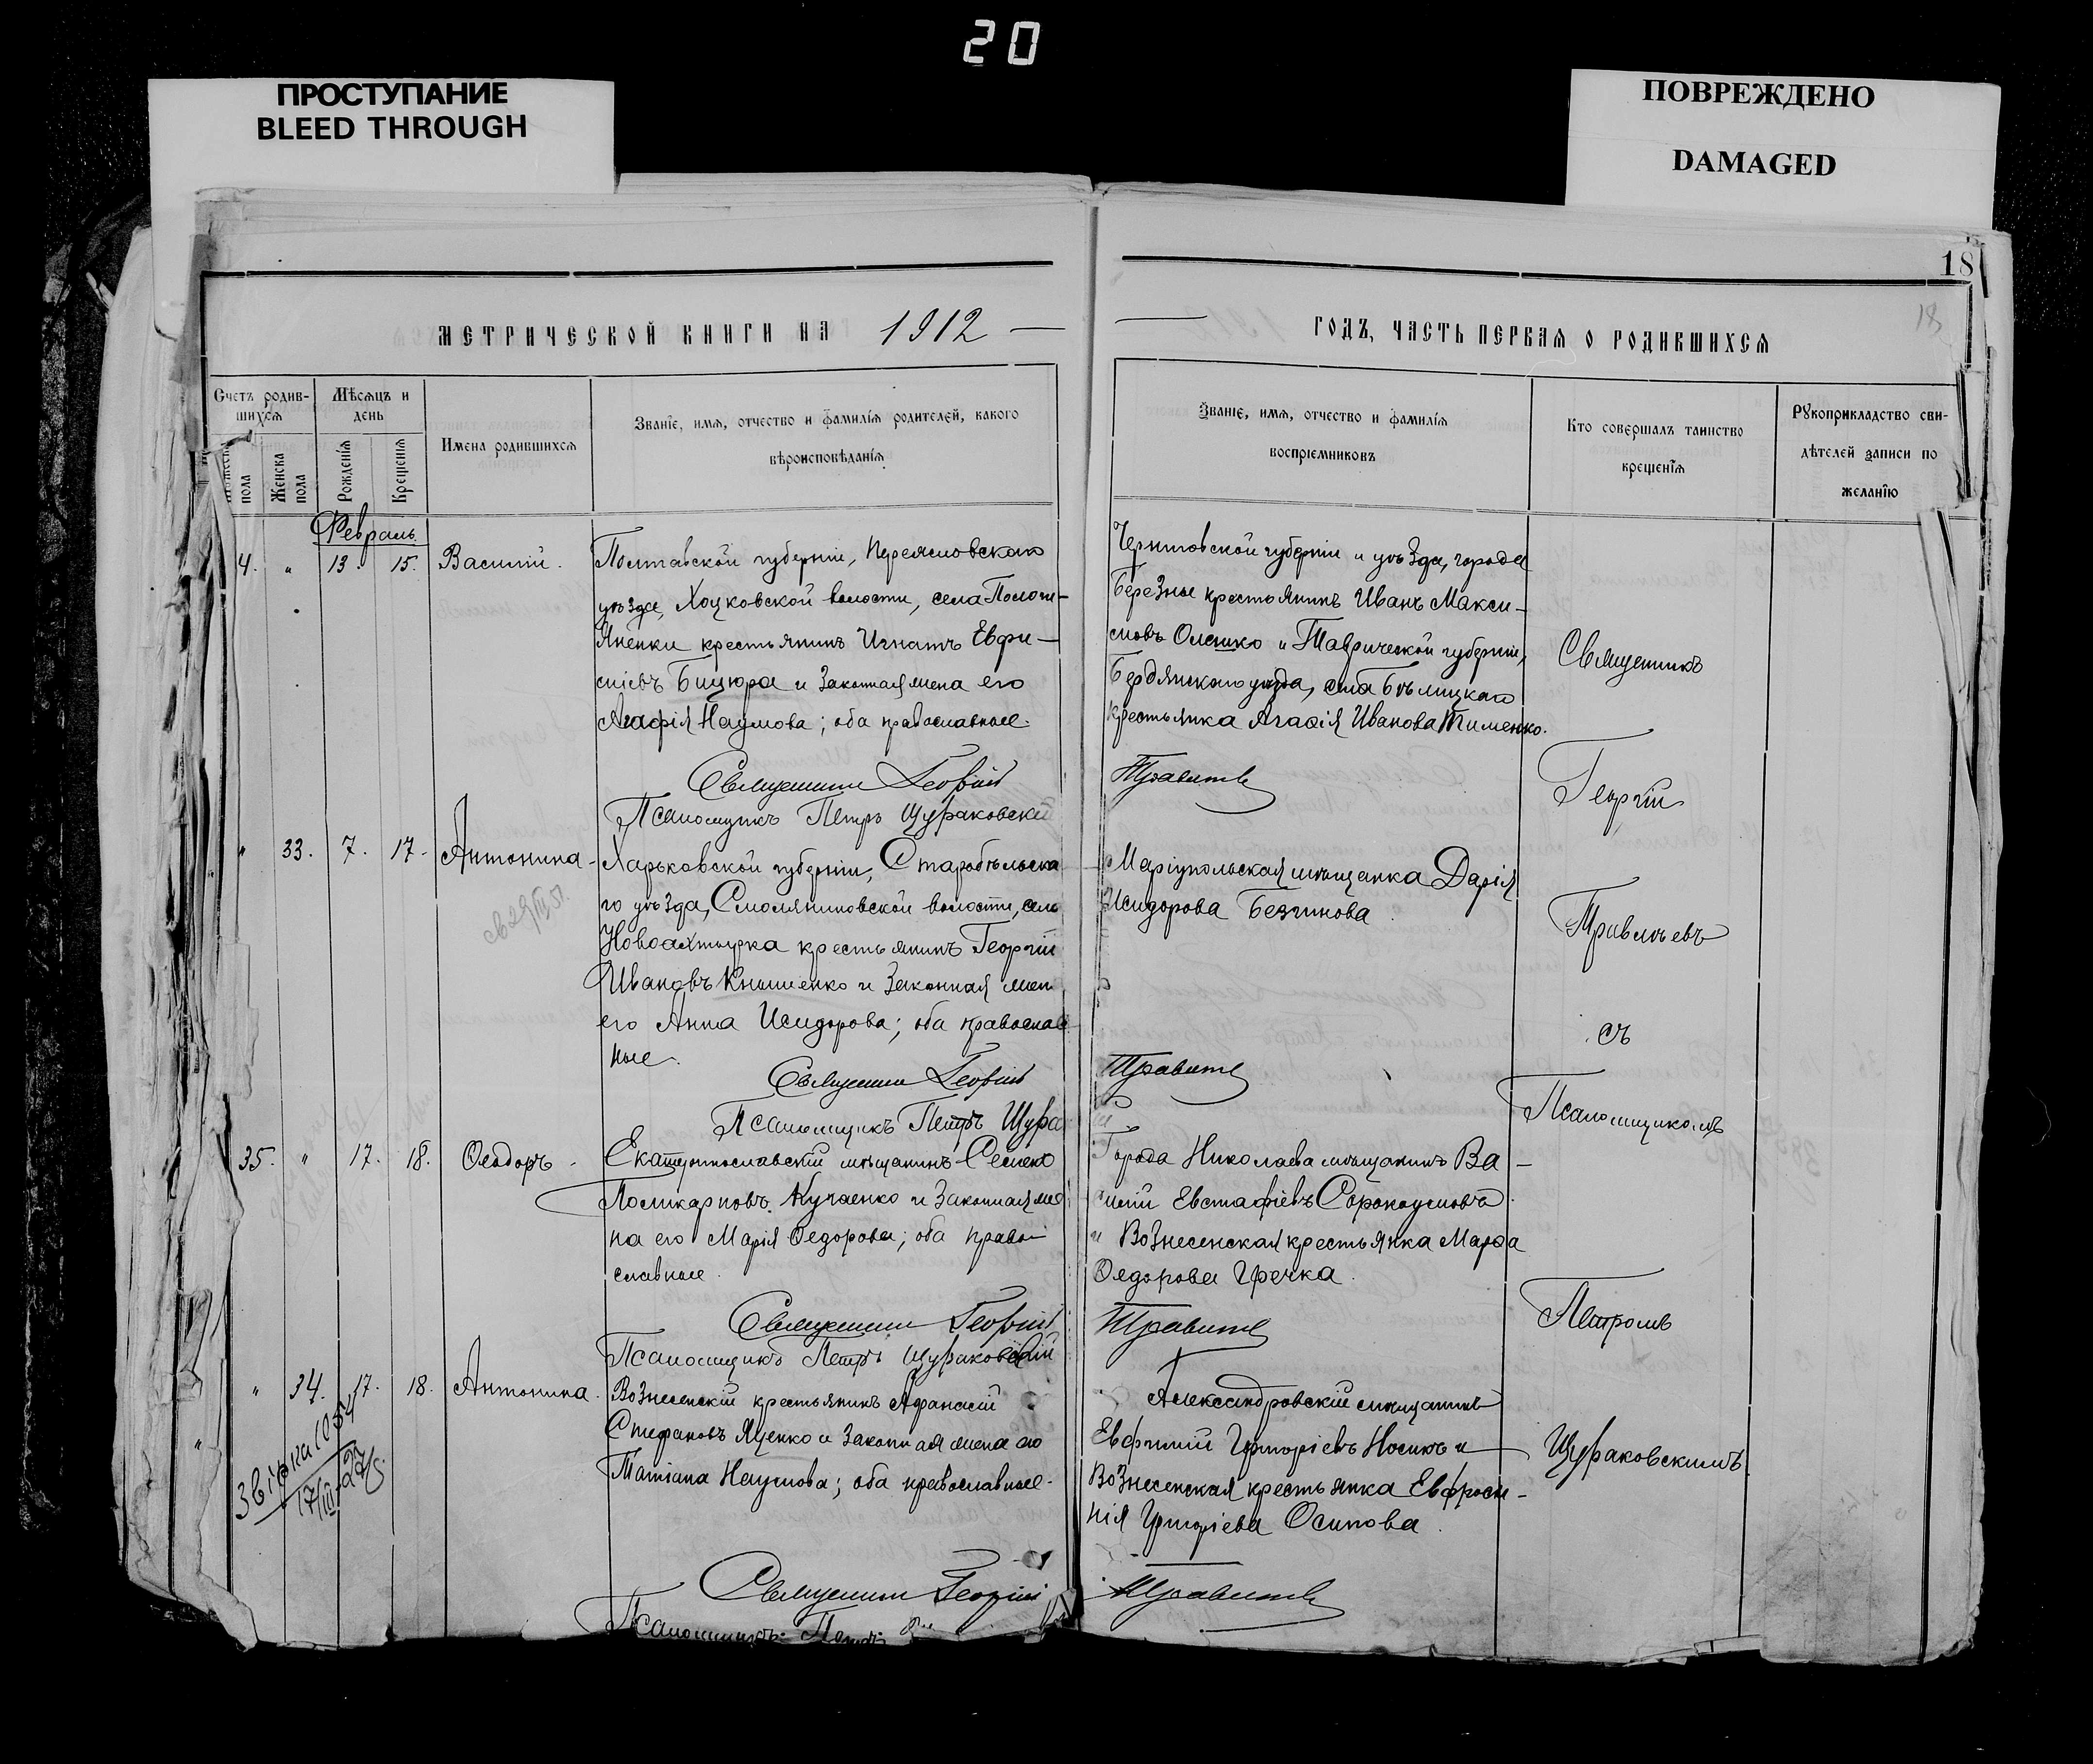 20
ПРОСТУПАНИЕ
BLEED THROUGH
ПОВРЕЖДЕНО
DAMAGED
18
18
МЕТРИЧЕСКОЙ КНИГИ НА 1912 —
— ГОДЪ, ЧАСТЬ ПЕРВАЯ О РОДИВШИХСЯ
Счетъ родив-
шихся
Мѣсяцъ и
день
Имена родившихся
Званіе, имя, отчество и фамилія родителей, какого
вѣроисповѣданія
пола
Женска
пола
Рожденія
Крещенія
Званіе, имя, отчество и фамилія
воспріемниковъ
Кто совершалъ таинство
крещенія
Рукоприкладство сви-
дѣтелей записи по
желанію
Февраль
4. „ 13. 15. Василій.
Полтавской губерніи, Переяславскаго
уѣзда, Хоцковской волости, села Положи-
Яненки крестьянинъ Игнатъ Евфи-
міевъ Бицюра и законная жена его
Агафія Наумова; оба православные.
Священникъ Георгій
Псаломщикъ Петръ Щураковскій
Черниговской губерніи и уѣзда, города
Березны крестьянинъ Иванъ Макси-
мовъ Олешко и Таврической губерніи,
Бердянскаго уѣзда, села Бѣлицкаго
крестьянка Агафія Иванова Тименко.
„ 33. 7. 17. Антонина.
Харьковской губерніи, Старобѣльска
го уѣзда, Смоляниновской волости, села
Новоахтырка крестьянинъ Георгій
Ивановъ Книшенко и законная жена
его Анна Исидорова; оба православ
ные.
Священникъ Георгій
Псаломщикъ Петръ Щура
Маріупольская мѣщанка Дарія
Исидорова Безчинова.
35. „ 17. 18. Ѳеодоръ.
Екатеринославскій мѣщанинъ Семенъ
Поликарповъ Кучаенко и законная же
на его Марія Ѳедорова; оба право-
славные.
Священникъ Георгій
Псаломщикъ Петръ Щураковскій
Города Николаева мѣщанинъ Ва-
силій Евстафіевъ Сорокоумовъ
и Вознесенская крестьянка Марѳа
Ѳедорова Гречка.
„ 34. 17. 18. Антонина.
Вознесенскій крестьянинъ Афанасій
Стефановъ Яценко и законная жена его
Татіана Наумова; оба православные.
Священникъ Георгій
Псаломщикъ Петръ
Александровскій мѣщанинъ
Евфимій Григоріевъ Носикъ и
Вознесенская крестьянка Евфроси-
нія Григоріева Осипова.
Священникъ
Георгій
съ
Псаломщикомъ
Петромъ
Щураковскимъ